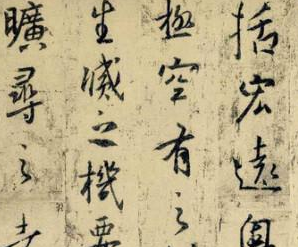 括宏遠奧
極空有之
生滅之機要
曠尋之者